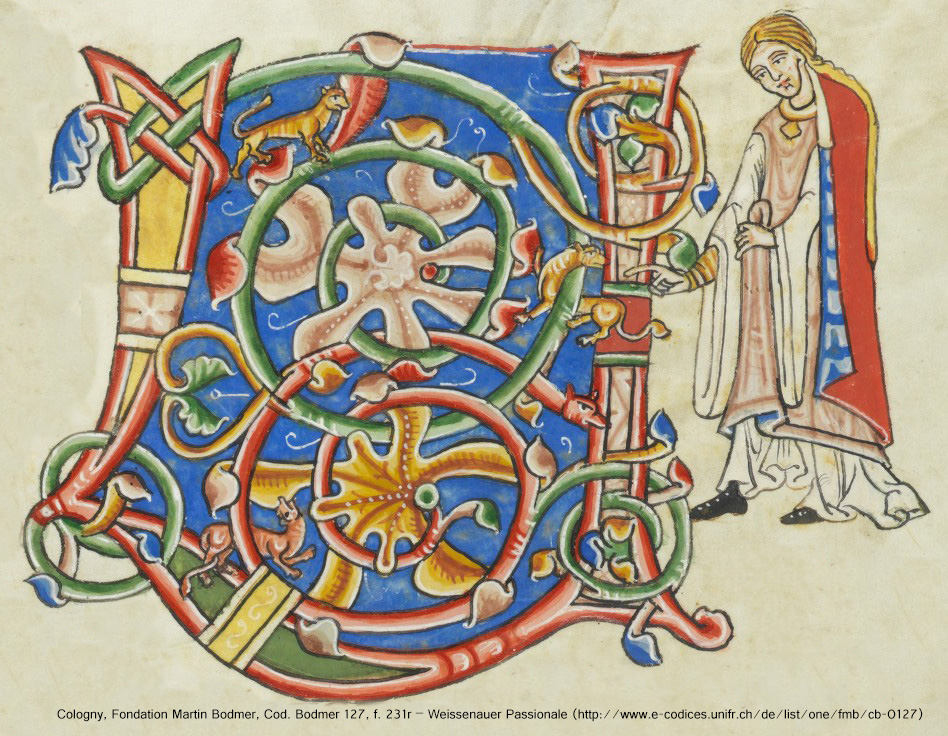 Cologny, Fondation Martin Bodmer, Cod. Bodmer 127, f. 231r – Weissenauer Passionale (http://www.e-codices.unifr.ch/de/list/one/fmb/cb-0127)